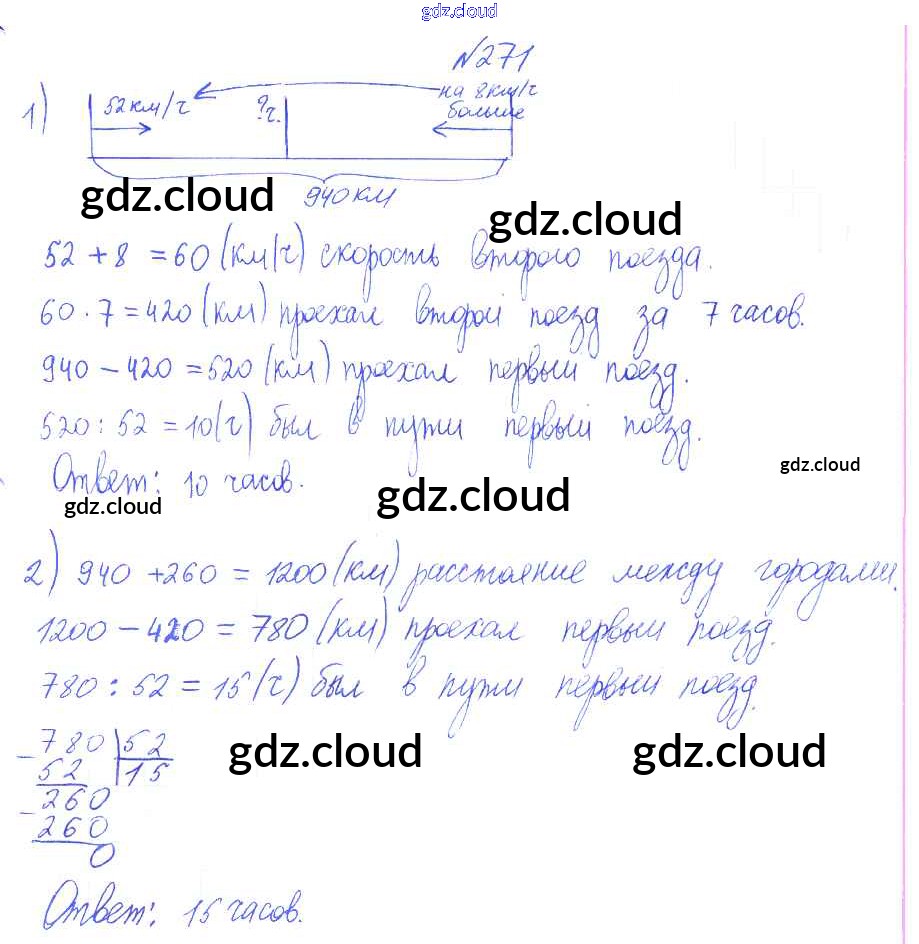 gdz.cloud
№271
1) 52км/ч ?ч. на 8км/ч
больше
940 км
gdz.cloud
gdz.cloud
52 + 8 = 60 (км/ч) скорость второго поезда.
60 · 7 = 420 (км) проехал второй поезд за 7 часов.
940 - 420 = 520 (км) проехал первый поезд.
520 : 52 = 10 (ч) был в пути первый поезд.
gdz.cloud
Ответ: 10 часов.
gdz.cloud
gdz.cloud
2) 940 + 260 = 1200 (км) расстояние между городами.
1200 - 420 = 780 (км) проехал первый поезд.
780 : 52 = 15 (ч) был в пути первый поезд.
gdz.cloud
gdz.cloud
- 780 | 52
52 | 15
- 260
260
0
Ответ: 15 часов.